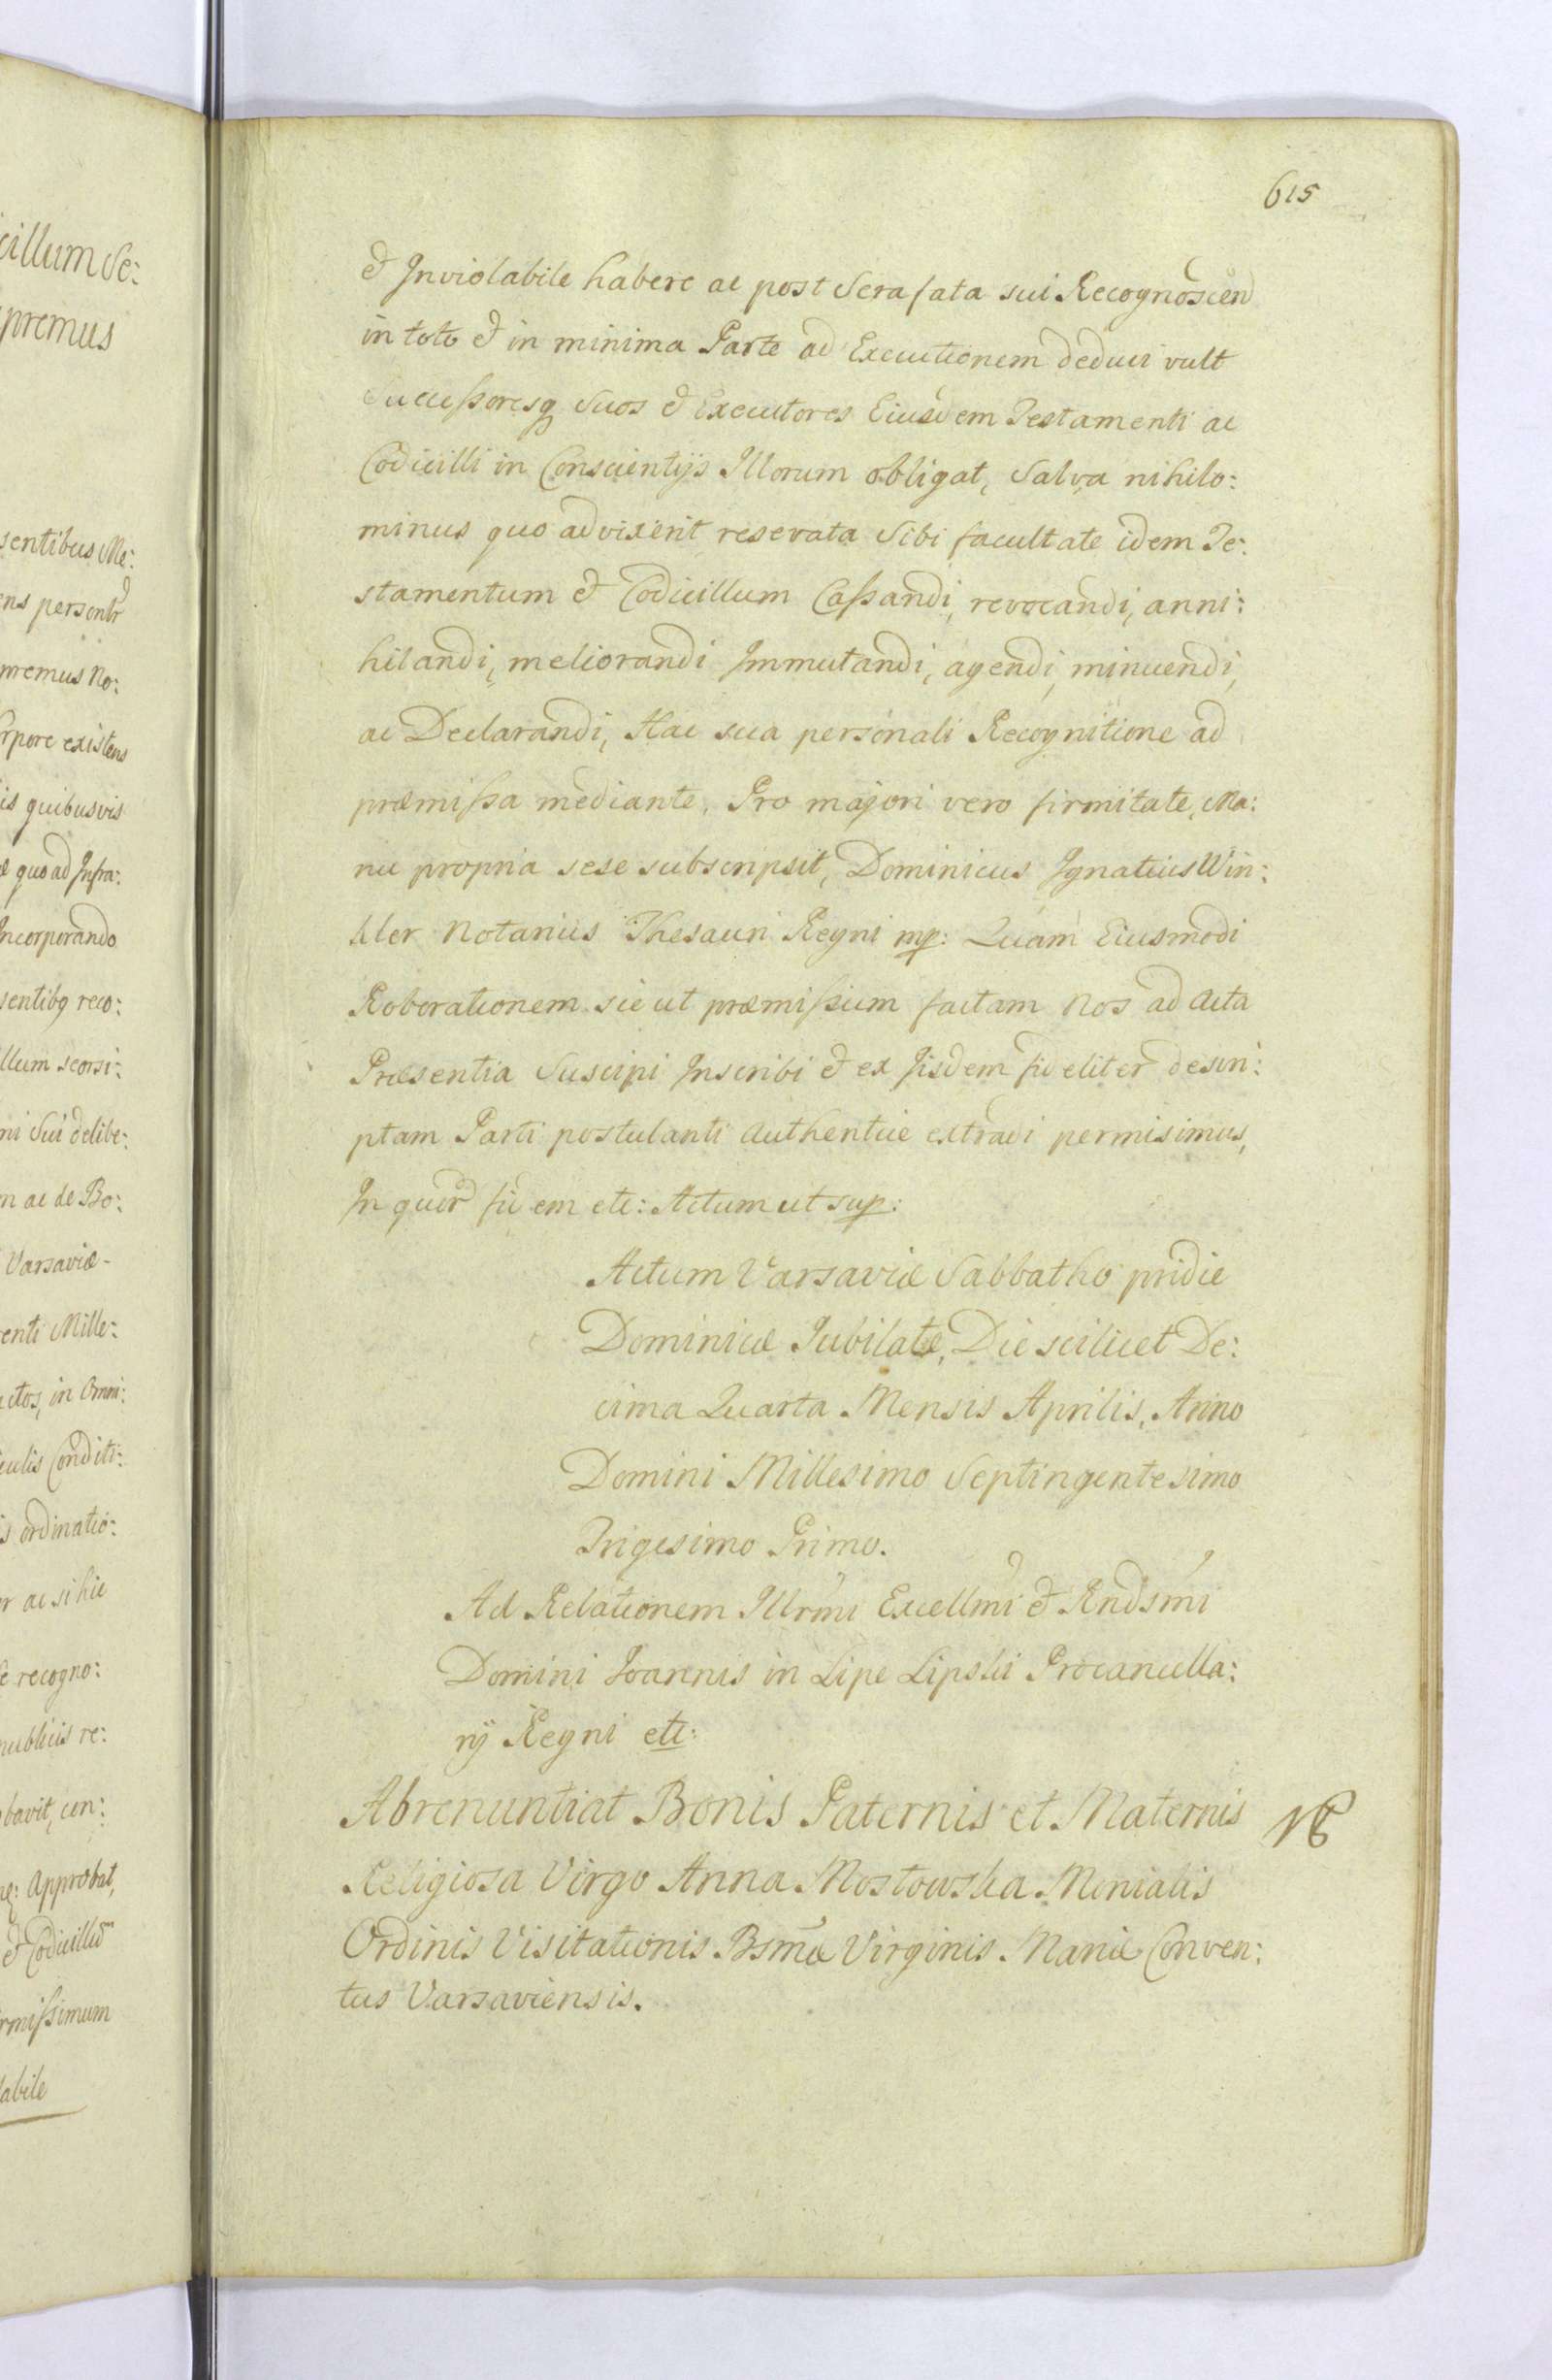 615
& Inviolabile habere ac post Sera fata sui Recognoscen
in toto & in minima Parte ad Executionem deduci vult
Successoresq Suos & Executores Eiusdem Testamenti ac
Codicilli in Conscientijs Illorum obligat, Salva nihilo:
minus quo advixerit reservata Sibi facultate idem Te:
stamentum & Codicillum Cassandi, revocandi, anni:
hilandi, meliorandi Immutandi, agendi, minuendi,
ac Declarandi, Hac sua personali Recognitione ad
præmissa mediante. Pro majori vero firmitate, Ma:
nu propria sese subscripsit, Dominicus Ignatius Win:
kler Notarius Thesauri Regni mp: Quam Eiusmodi
Roborationem sic ut præmissum factam Nos ad Acta
Præsentia Suscipi Inscribi & ex Iisdem fideliter descri:
ptam Parti postulanti Authentice extradi permisimus,
In quor fidem etc: Actum ut sup:
Actum Varsaviæ Sabbatho pridie
Dominicæ Jubilate, Die scilicet De:
cima Quarta Mensis Aprilis, Anno
Domini Millesimo Septingentesimo
Trigesimo Primo.
Ad Relationem Illrmi Excellmi & Rndsmi
Domini Joannis in Lipe Lipski Procancella:
rij Regni etc:
Abrenuntiat Bonis Paternis et Maternis
Religiosa Virgo Anna Mostowska Monialis
Ordinis Visitationis Bsmæ Virginis Mariæ Conven:
tus Varsaviensis.
cillum Se:
premus
sentibus Me:
ens personlr
premus No:
rpore existens
is quibusvis
quo ad Infra:
Incorporando
sentibq reco:
llum scorsi:
ni Sui delibe:
m ac de Bo:
Varsaviæ
enti Mille:
ctos, in Omni:
culis Conditi:
is ordinatio:
r ac si hic
e recogno:
publicis re:
bavit, con:
Approbat,
& Codicillu
rmissimum
labile